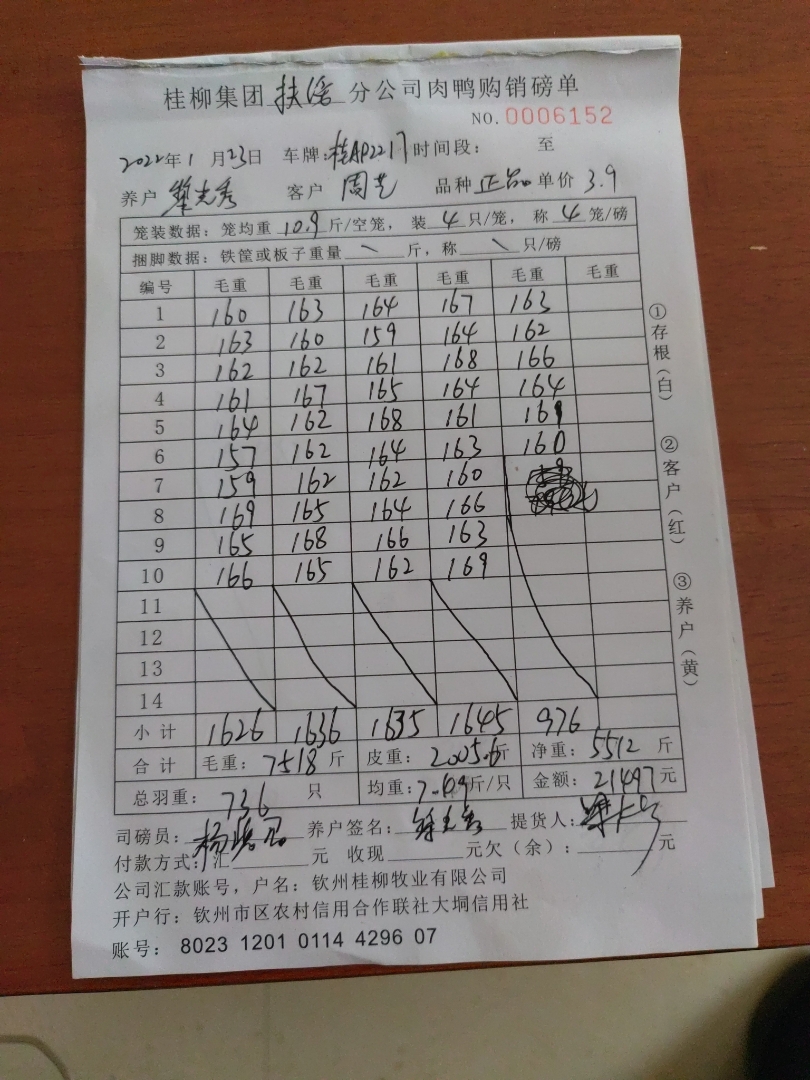 桂柳集团扶绥分公司肉鸭购销磅单
NO.0006152
2022年1月23日 车牌:桂AP2217 时间段: 至
养户 客户 周艺 品种 正品 单价 3.9
笼装数据:笼均重 10.9 斤/空笼, 装 4 只/笼, 称 4 笼/磅
捆脚数据:铁筐或板子重量 \ 斤,称 \ 只/磅
编号 毛重 毛重 毛重 毛重 毛重 毛重
1 160 163 164 167 163
2 163 160 159 164 162
3 162 162 161 168 166
4 161 167 165 164 164
5 164 162 168 161 161
6 157 162 164 163 160
7 159 162 162 160
8 169 165 164 166
9 165 168 166 163
10 166 165 162 169
11
12
13
14
小计 1626 1636 1635 1645 976
合计 毛重: 7518 斤 皮重: 2005.6斤 净重: 5512 斤
总羽重: 736 只 均重:7.49斤/只 金额: 21497元
司磅员: 养户签名: 提货人:
付款方式:汇 元 收现 元欠(余): 元
公司汇款账号,户名:钦州桂柳牧业有限公司
开户行:钦州市区农村信用合作联社大垌信用社
账号: 8023 1201 0114 4296 07
①存根(白) ②客户(红) ③养户(黄)